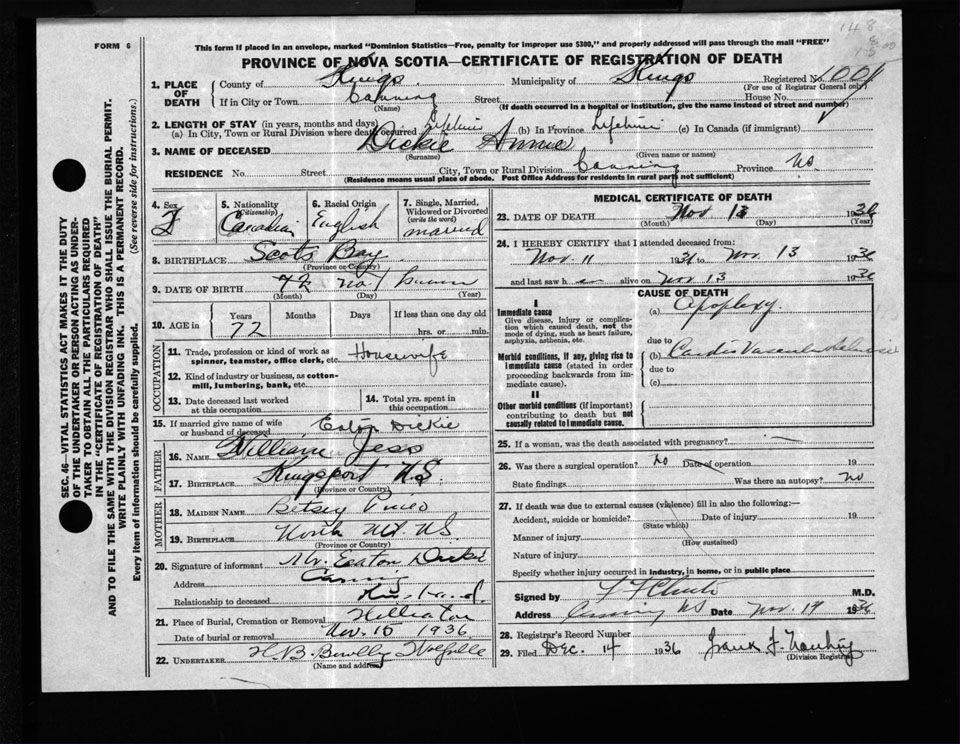 148
FORM 6
This form if placed in an envelope, marked "Dominion Statistics—Free, penalty for improper use $300," and properly addressed will pass through the mail "FREE"
PROVINCE OF NOVA SCOTIA—CERTIFICATE OF REGISTRATION OF DEATH
1. PLACE OF DEATH County of Kings Municipality of Kings Registered No. 1001
(For use of Registrar General only)
If in City or Town Canning Street House No.
(Name) (If death occurred in a hospital or institution, give the name instead of street and number)
2. LENGTH OF STAY (in years, months and days)
(a) In City, Town or Rural Division where death occurred Lifetime (b) In Province Lifetime (c) In Canada (if immigrant)
3. NAME OF DECEASED Dickie Annie
(Surname) (Given name or names)
RESIDENCE No. Street City, Town or Rural Division Canning Province NS
(Residence means usual place of abode. Post Office Address for residents in rural parts not sufficient)
4. Sex F
5. Nationality (Citizenship) Canadian
6. Racial Origin English
7. Single, Married, Widowed or Divorced (write the word) married
8. BIRTHPLACE Scots Bay
(Province or Country)
9. DATE OF BIRTH 72 not known
(Month) (Day) (Year)
10. AGE in Years Months Days If less than one day old
72 hrs. or min.
OCCUPATION
11. Trade, profession or kind of work as spinner, teamster, office clerk, etc. Housewife
12. Kind of industry or business, as cotton-mill, lumbering, bank, etc.
13. Date deceased last worked at this occupation
14. Total yrs. spent in this occupation
15. If married give name of wife or husband of deceased Eaton Dickie
FATHER
16. NAME William Jess
17. BIRTHPLACE Kingsport N.S.
(Province or Country)
MOTHER
18. MAIDEN NAME Betsey
19. BIRTHPLACE North Mt. NS
(Province or Country)
20. Signature of informant Mr. Eaton Dickie
Address Canning
Relationship to deceased Husband
21. Place of Burial, Cremation or Removal
Date of burial or removal Nov. 15 1936
22. UNDERTAKER H B Wolfville
(Name and address)
MEDICAL CERTIFICATE OF DEATH
23. DATE OF DEATH Nov 13 1936
(Month) (Day) (Year)
24. I HEREBY CERTIFY that I attended deceased from:
Nov. 11 1936 to Nov 13 1936
and last saw h er alive on Nov 13 1936
CAUSE OF DEATH
I
Immediate cause
Give disease, injury or complication which caused death, not the mode of dying, such as heart failure, asphyxia, asthenia, etc.
(a) Apoplexy
due to
Morbid conditions, if any, giving rise to immediate cause (stated in order proceeding backwards from immediate cause).
(b) Cardio Vascular
due to
(c)
II
Other morbid conditions (if important) contributing to death but not causally related to immediate cause.
25. If a woman, was the death associated with pregnancy?
26. Was there a surgical operation? no Date of operation 19
State findings Was there an autopsy? no
27. If death was due to external causes (violence) fill in also the following:
Accident, suicide or homicide? Date of injury 19
(State which)
Manner of injury
(How sustained)
Nature of injury
Specify whether injury occurred in industry, in home, or in public place
Signed by M.D.
Address Canning NS Date Nov. 14 1936
28. Registrar's Record Number
29. Filed Dec. 14 1936 Frank F.
(Division Registrar)
SEC. 46—VITAL STATISTICS ACT MAKES IT THE DUTY
OF THE UNDERTAKER OR PERSON ACTING AS UNDER-
TAKER TO OBTAIN ALL THE PARTICULARS REQUIRED
IN THE "CERTIFICATE OF REGISTRATION OF DEATH"
AND TO FILE THE SAME WITH THE DIVISION REGISTRAR WHO SHALL ISSUE THE BURIAL PERMIT.
WRITE PLAINLY WITH UNFADING INK. THIS IS A PERMANENT RECORD.
Every item of information should be carefully supplied. (See reverse side for instructions.)